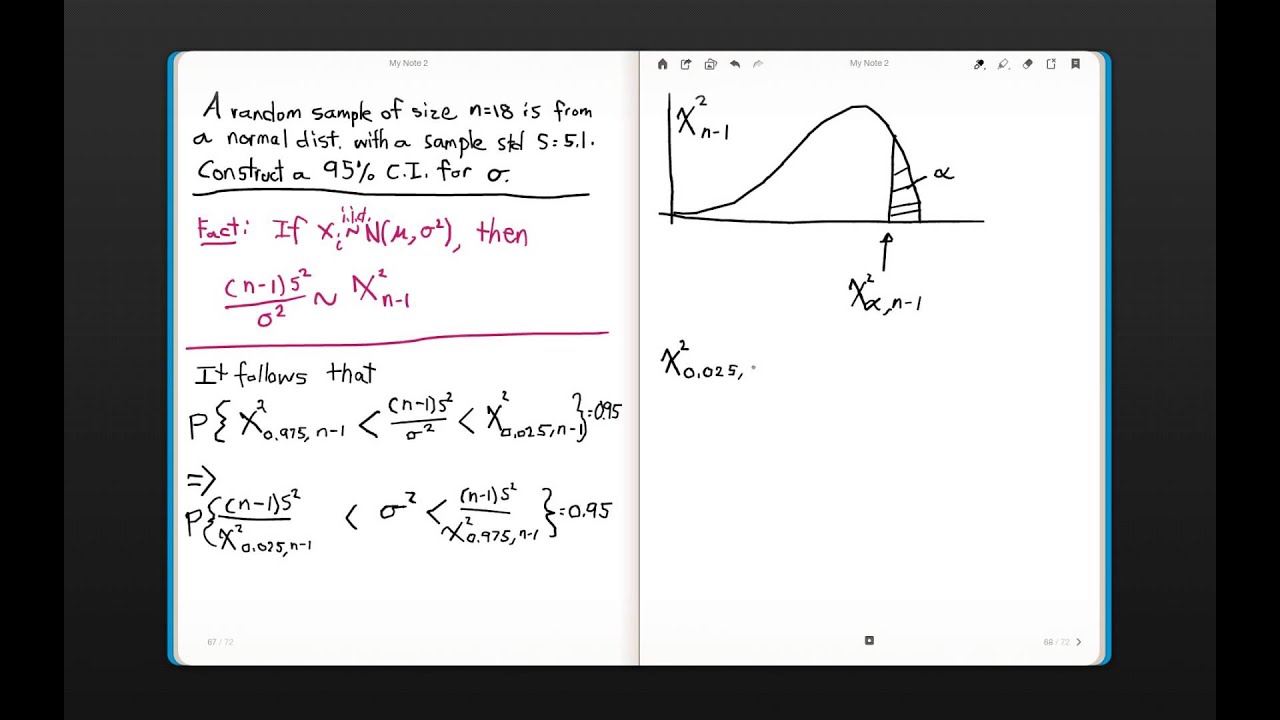 My Note 2
A random sample of size n=18 is from
a normal dist. with a sample std S=5.1.
Construct a 95% C.I. for σ.
Fact: If X_i i.i.d. ~ N(μ, σ²), then
(n-1)S²/σ² ~ χ²_n-1
It follows that
P{ χ²_0.975, n-1 < (n-1)S²/σ² < χ²_0.025, n-1 } = 0.95
=>
P{ (n-1)S²/χ²_0.025, n-1 < σ² < (n-1)S²/χ²_0.975, n-1 } = 0.95
67 / 72
My Note 2
χ²_n-1
α
χ²_α, n-1
χ²_0.025,
68 / 72